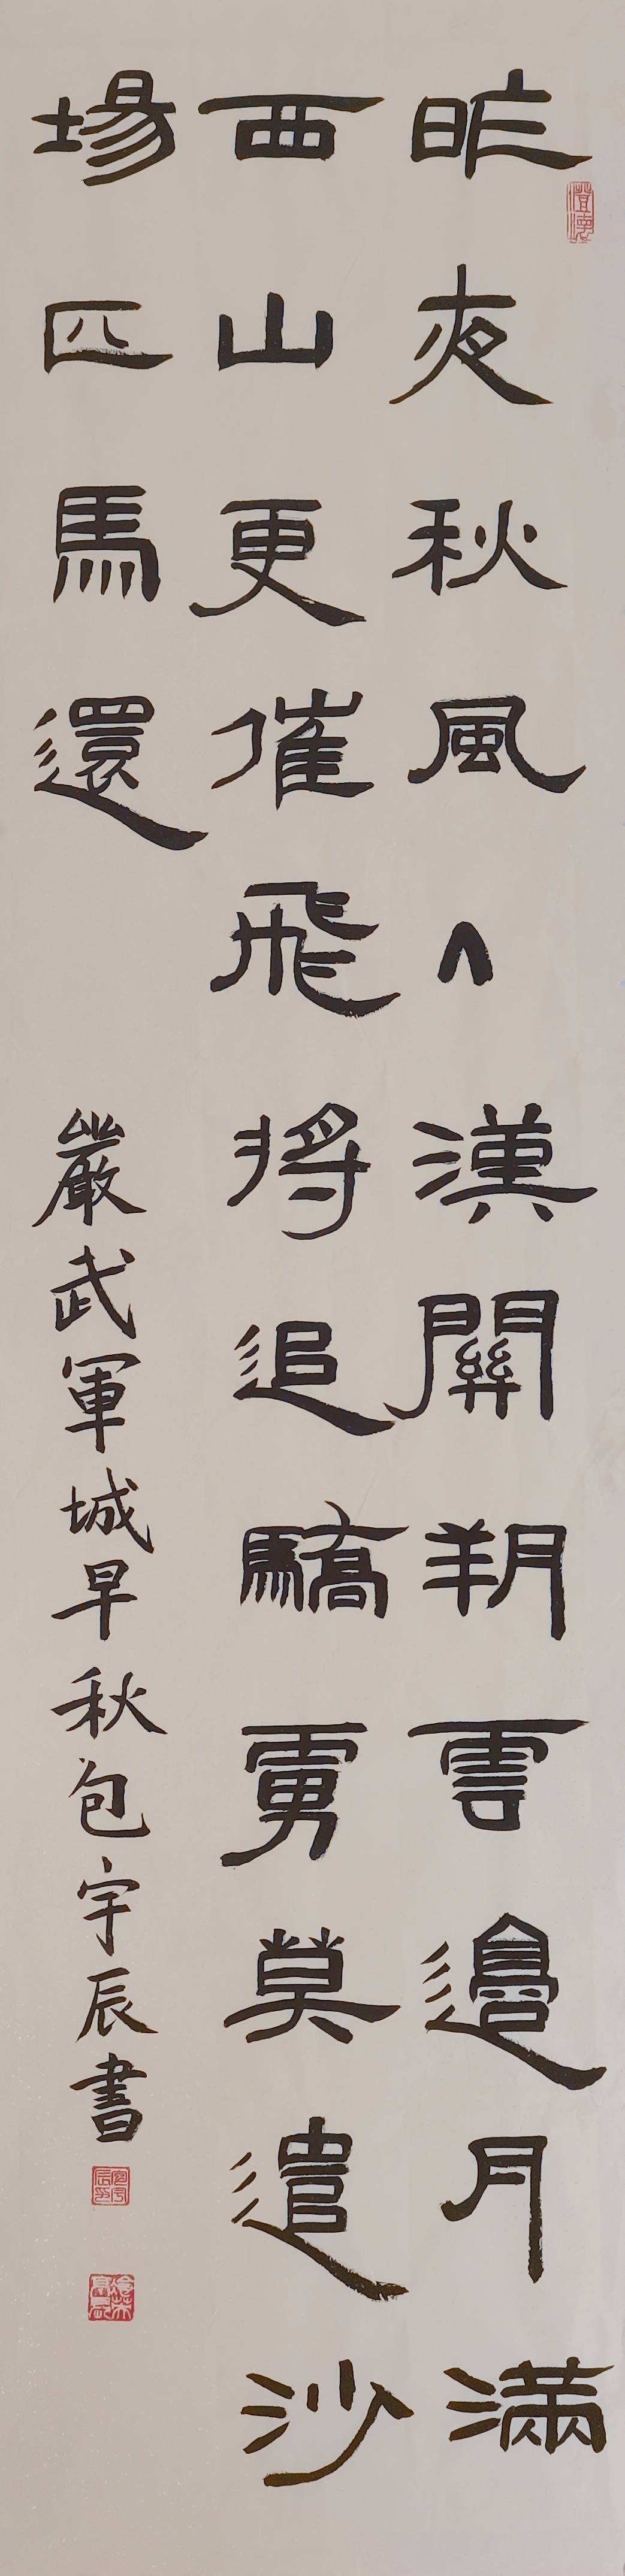 昨夜秋風入漢關朔雲邊月滿
西山更催飛將追驕虜莫遣沙
場匹馬還
嚴武軍城早秋包宇辰書
澄懷
包宇辰印